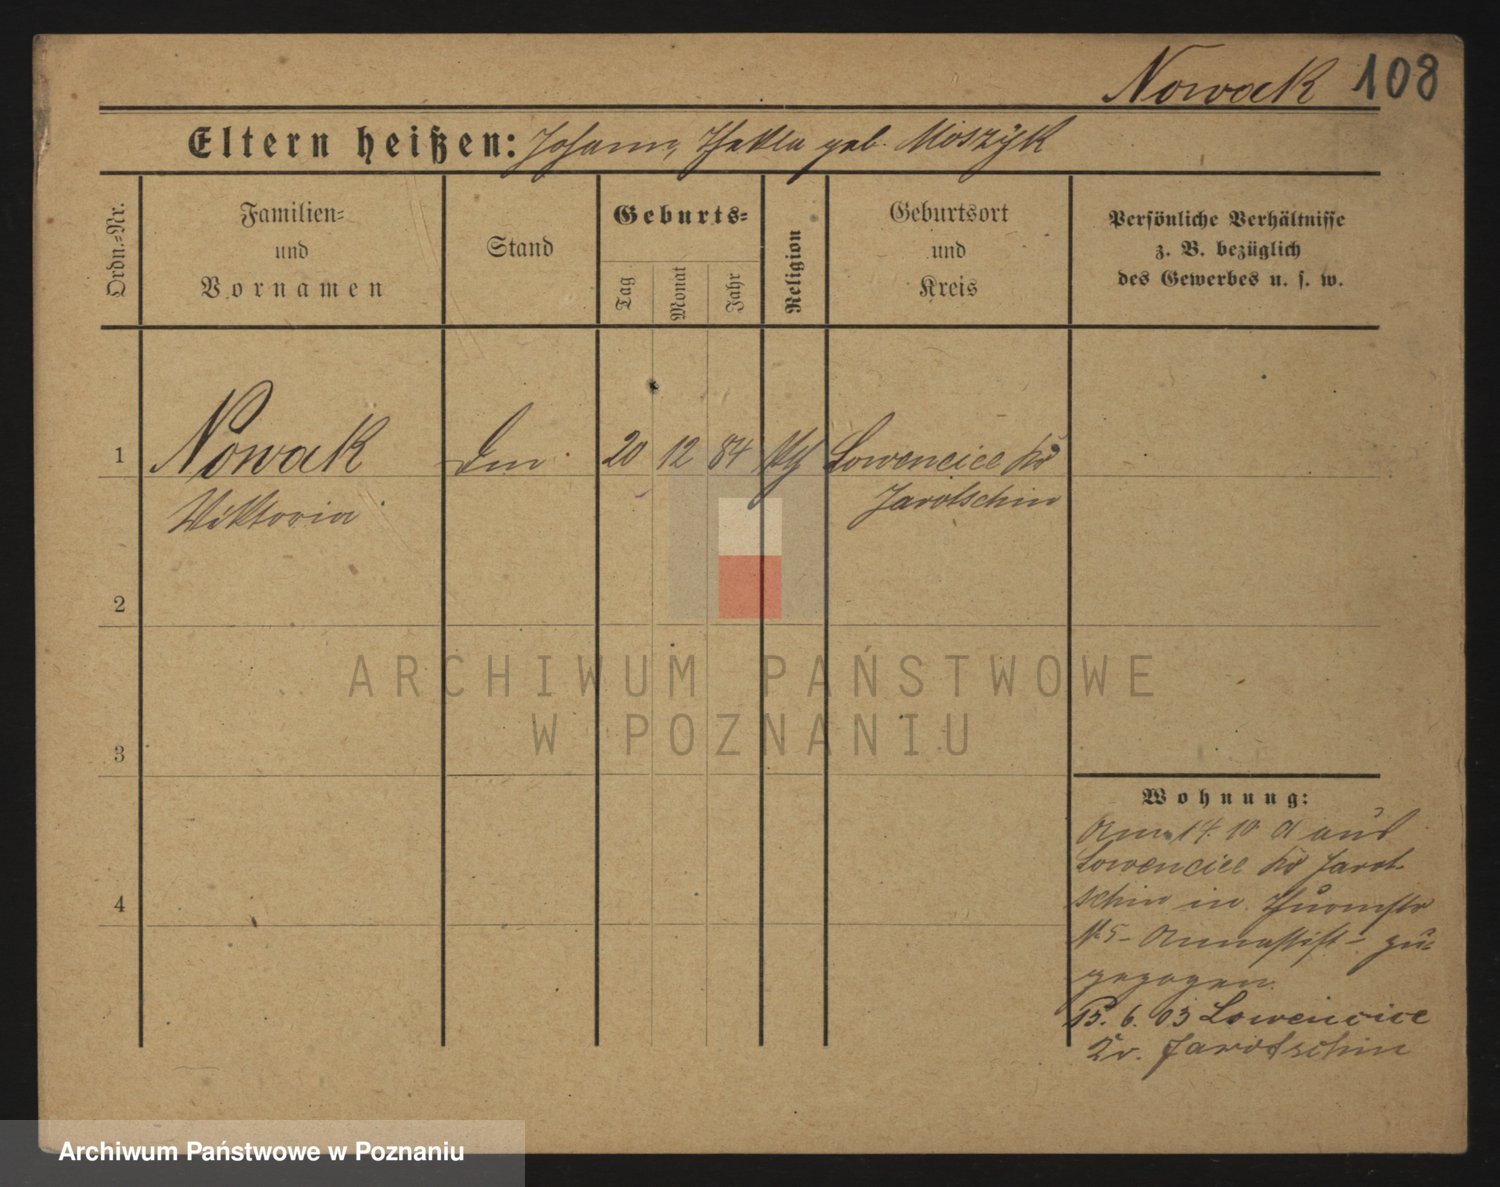 Nowak 108
Eltern heißen: Johann, Thekla geb. Moszyk
Ordn.-Nr.
Familien-
und
Vornamen
Stand
Geburts-
Tag
Monat
Jahr
Religion
Geburtsort
und
Kreis
Persönliche Verhältnisse
z. B. bezüglich
des Gewerbes u. s. w.
1 Nowak 20 12 84 Lowencice Kr
Viktoria Jarotschin
2
3
4
ARCHIWUM PAŃSTWOWE
W POZNANIU
Wohnung:
Am 14. 10 01 aus
Lowencice Kr Jarot-
schin in Thurmstr
№ 5 - Annastift - zu-
gezogen.
15. 6. 03 Lowencice
Kr. Jarotschin
Archiwum Państwowe w Poznaniu